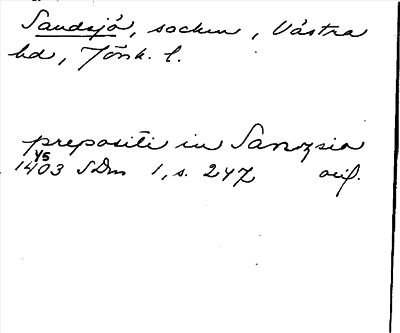 Sandsjö, socken, Västra
hd, Jönk. l.
prepositi in Sanzsio
1403 15/5 SDns 1, s. 247 orig.